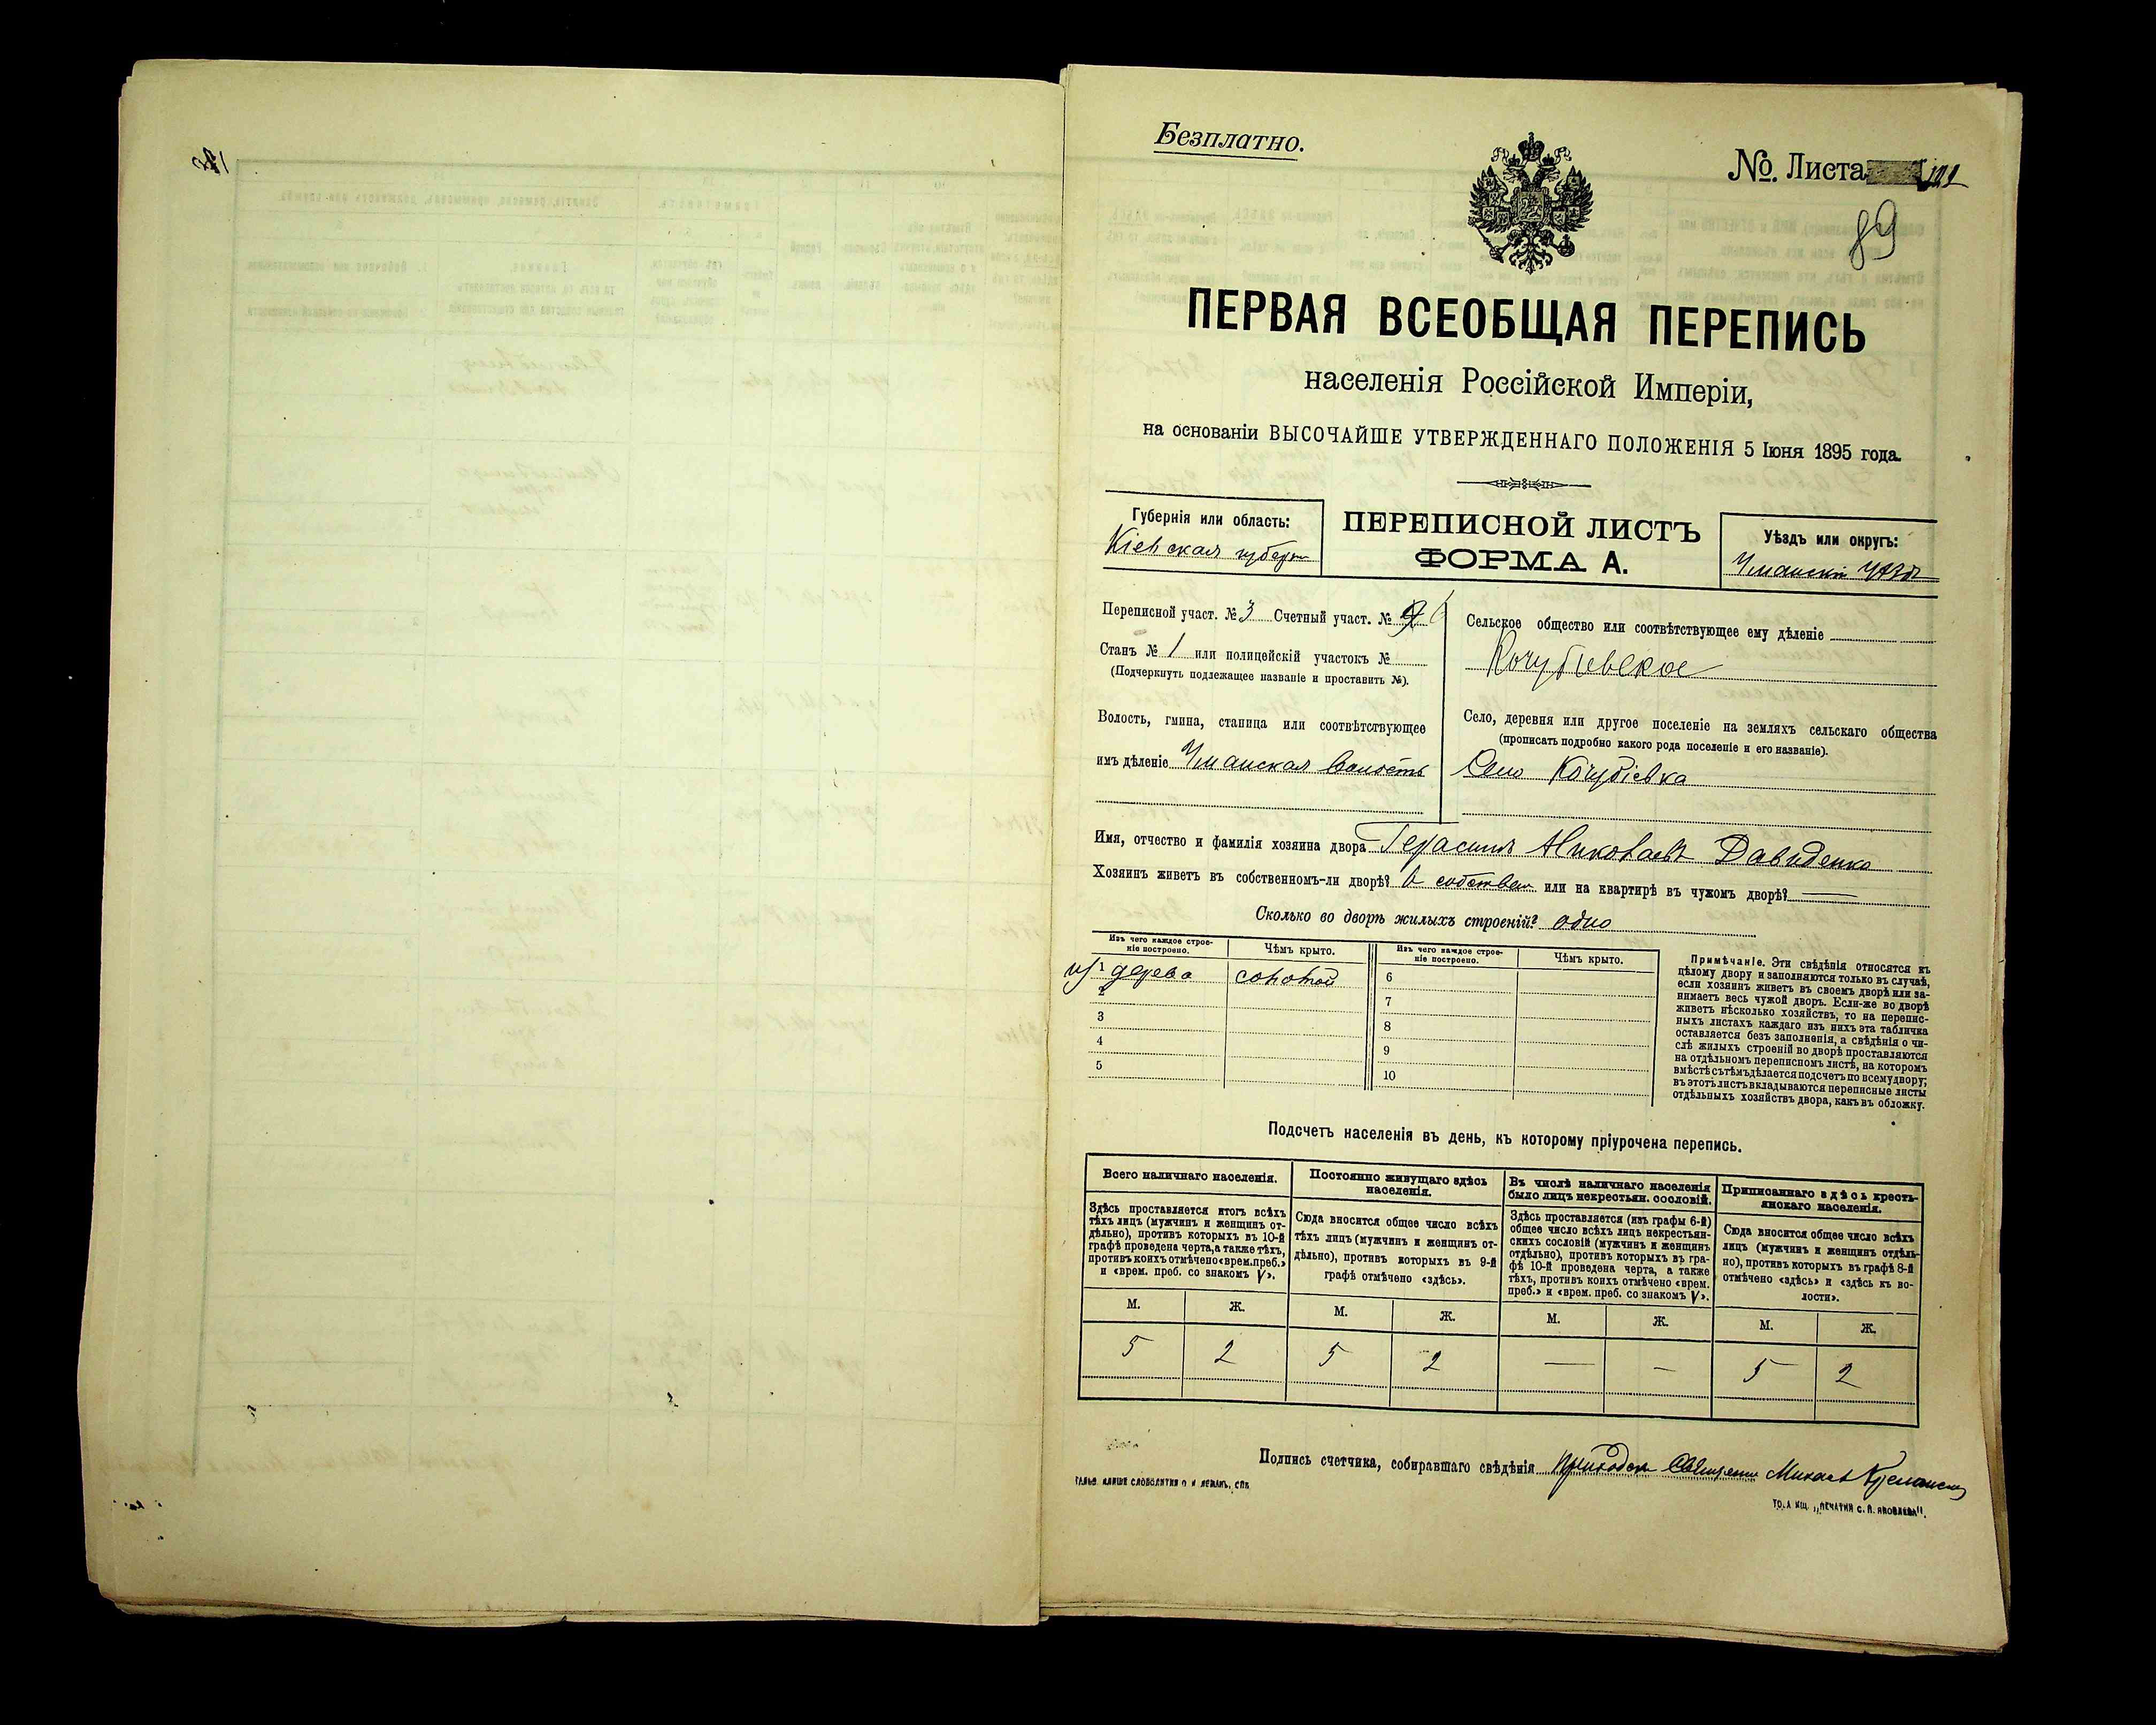 Безплатно.
№. Листа
89
ПЕРВАЯ ВСЕОБЩАЯ ПЕРЕПИСЬ
населенія Россійской Имперіи,
на основаніи ВЫСОЧАЙШЕ УТВЕРЖДЕННАГО ПОЛОЖЕНІЯ 5 Іюня 1895 года.
Губернія или область:
Кіевская губерн
ПЕРЕПИСНОЙ ЛИСТЪ
ФОРМА А.
Уѣздъ или округъ:
Уманскій уѣздъ
Переписной участ. № 3 Счетный участ. №
Станъ № 1 или полицейскій участокъ №
(Подчеркнуть подлежащее названіе и проставить №).
Волость, гмина, станица или соотвѣтствующее
имъ дѣленіе Уманская волость
Сельское общество или соотвѣтствующее ему дѣленіе
Кочубіевское
Село, деревня или другое поселеніе на земляхъ сельскаго общества
(прописать подробно какого рода поселеніе и его названіе).
Село Кочубіевка
Имя, отчество и фамилія хозяина двора Герасимъ Николаевъ Давиденко
Хозяинъ живетъ въ собственномъ-ли дворѣ? в собствен или на квартирѣ въ чужомъ дворѣ? —
Сколько во дворѣ жилыхъ строеній? одно
Изъ чего каждое строе-
ніе построено.
Чѣмъ крыто.
Изъ чего каждое строе-
ніе построено.
Чѣмъ крыто.
1 изъ дерева соломой 6
2 7
3 8
4 9
5 10
Примѣчаніе. Эти свѣдѣнія относятся къ
цѣлому двору и заполняются только въ случаѣ,
если хозяинъ живетъ въ своемъ дворѣ или за-
нимаетъ весь чужой дворъ. Если-же во дворѣ
живетъ нѣсколько хозяйствъ, то на перепис-
ныхъ листахъ каждаго изъ нихъ эта табличка
оставляется безъ заполненія, а свѣдѣнія о чи-
слѣ жилыхъ строеній во дворѣ проставляются
на отдѣльномъ переписномъ листѣ, на которомъ
вмѣстѣ съ тѣмъ дѣлается подсчетъ по всему двору;
въ этотъ листъ вкладываются переписные листы
отдѣльныхъ хозяйствъ двора, какъ въ обложку.
Подсчетъ населенія въ день, къ которому пріурочена перепись.
Всего наличнаго населенія.
Здѣсь проставляется итогъ всѣхъ
тѣхъ лицъ (мужчинъ и женщинъ от-
дѣльно), противъ которыхъ въ 10-й
графѣ проведена черта, а также тѣхъ,
противъ коихъ отмѣчено «врем. преб.»
и «врем. преб. со знакомъ V».
Постоянно живущаго здѣсь
населенія.
Сюда вносится общее число всѣхъ
тѣхъ лицъ (мужчинъ и женщинъ от-
дѣльно), противъ которыхъ въ 9-й
графѣ отмѣчено «здѣсь».
Въ числѣ наличнаго населенія
было лицъ некрестьян. сословій.
Здѣсь проставляется (изъ графы 6-й)
общее число всѣхъ лицъ некрестьян-
скихъ сословій (мужчинъ и женщинъ
отдѣльно), противъ которыхъ въ гра-
фѣ 10-й проведена черта, а также
тѣхъ, противъ коихъ отмѣчено «врем.
преб.» и «врем. преб. со знакомъ V».
Приписаннаго здѣсь кресть-
янскаго населенія.
Сюда вносится общее число всѣхъ
лицъ (мужчинъ и женщинъ отдѣль-
но), противъ которыхъ въ графѣ 8-й
отмѣчено «здѣсь» и «здѣсь къ во-
лости».
М. Ж. М. Ж. М. Ж. М. Ж.
5 2 5 2 — — 5 2
Подпись счетчика, собиравшаго свѣдѣнія Приходск Священн Михаилъ
ТО-А ИЩ. „ПЕЧАТНЯ С. П. ЯКОВЛЕВА".